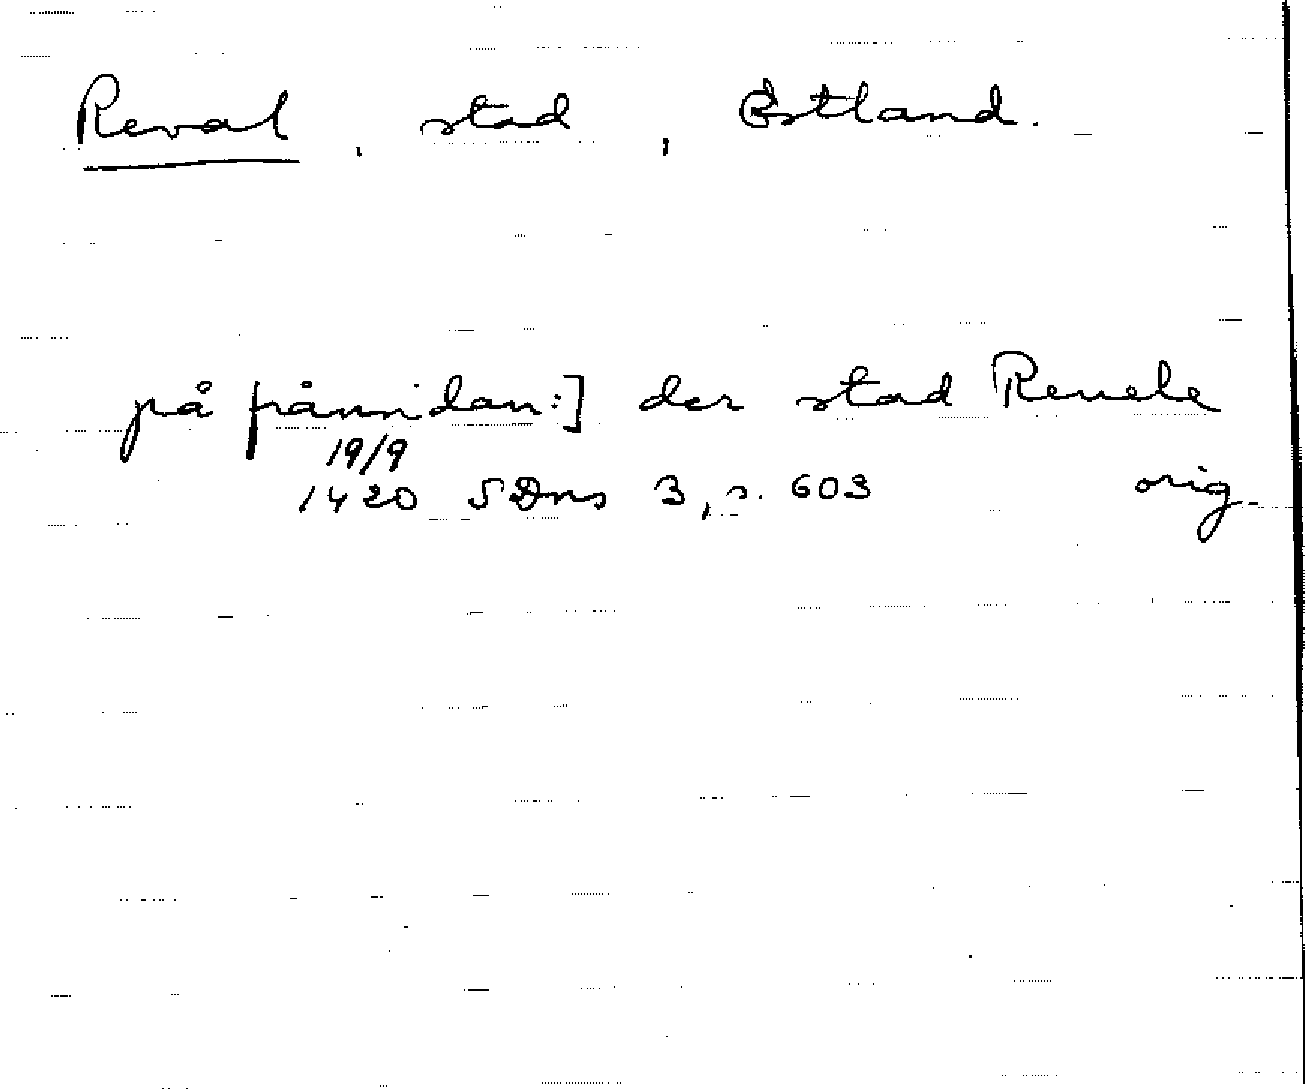 Reval, stad, Estland.
på frånsidan:] der stad Reuele
19/9
1420 SDns 3, s. 603 orig.